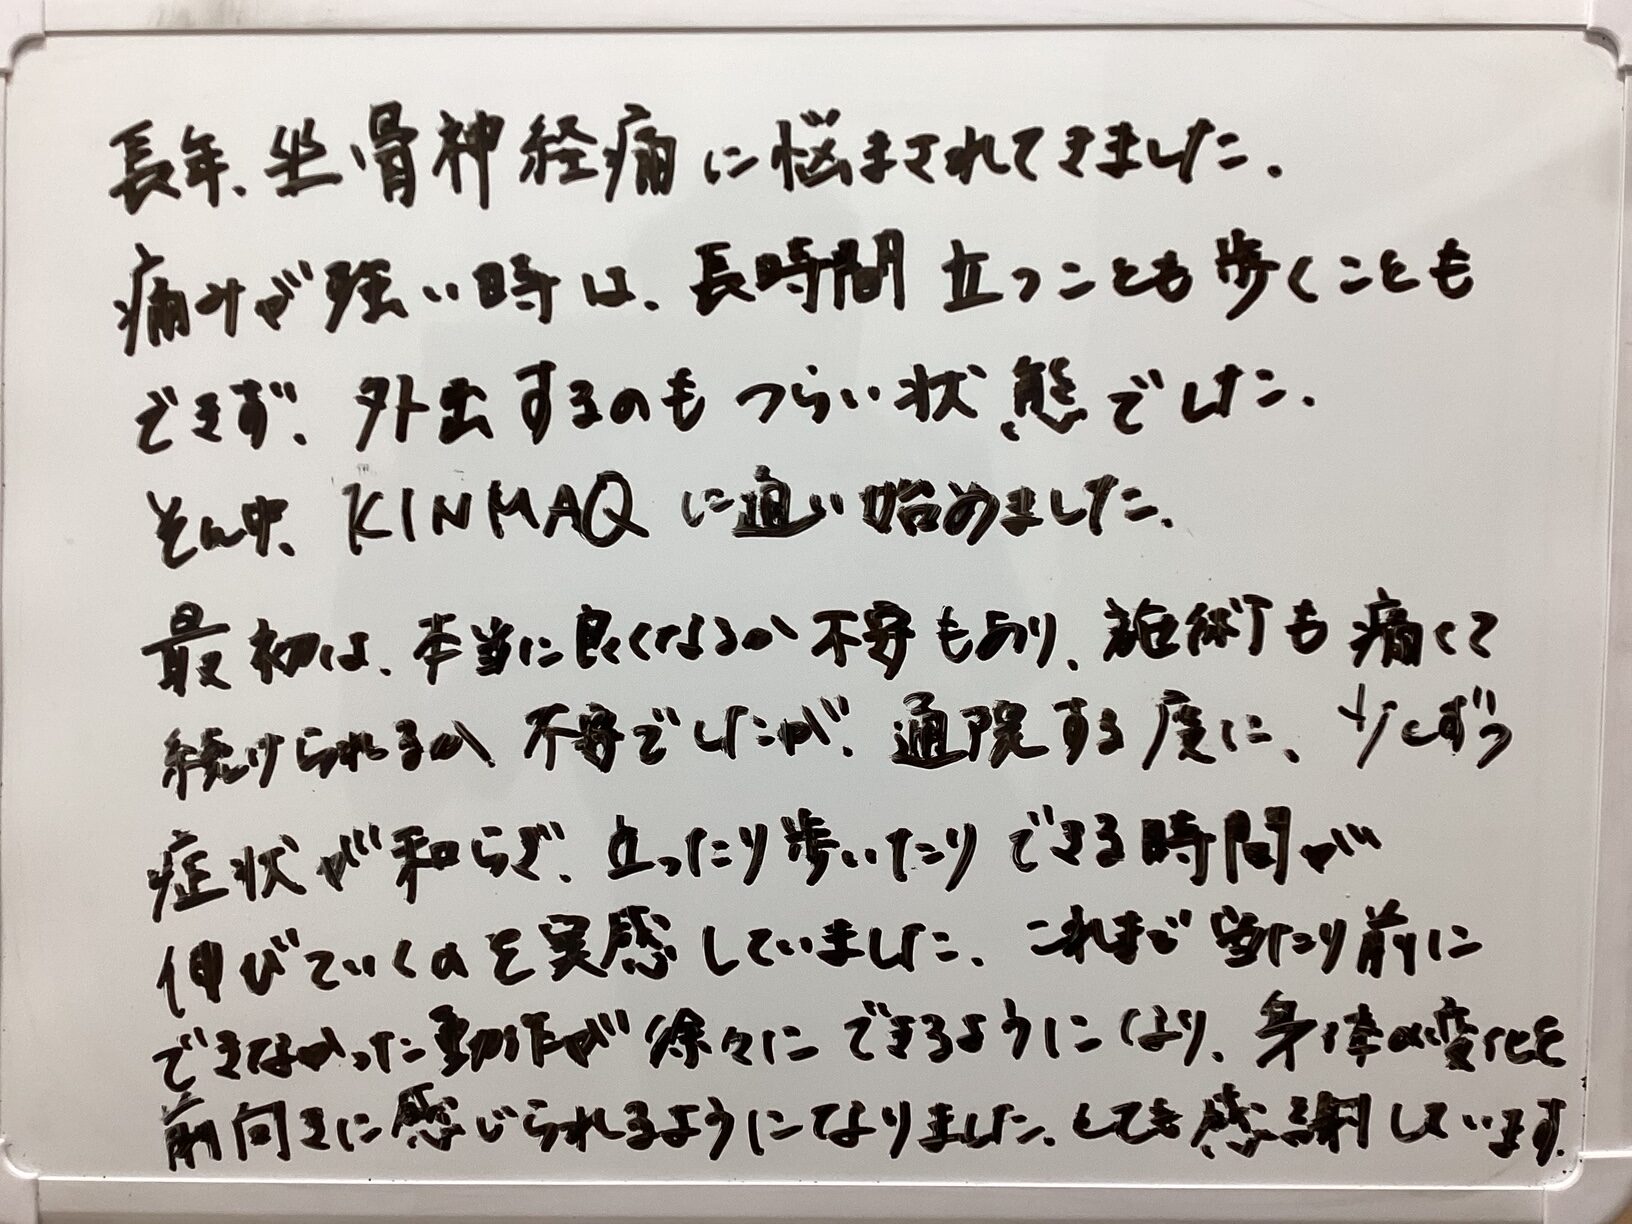 長年、坐骨神経痛に悩まされてきました。
痛みが強い時は、長時間立つことも歩くことも
できず、外出するのもつらい状態でした。
そん中、KINMAQに通い始めました。
最初は、本当に良くなるか不安もあり、施術も痛くて
続けられるか不安でしたが、通院する度に、少しずつ
症状が和らぎ、立ったり歩いたりできる時間が
伸びていくのを実感していました。これまで当たり前に
できなかった動作が徐々にできるようになり、身体の変化を
前向きに感じられるようになりました。とても感謝しています。